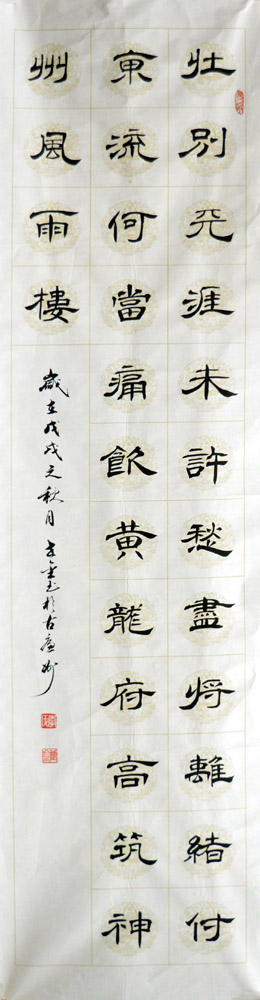 壮別天涯未許愁盡將離緒付
東流何當痛飲黄龍府高筑神
州風雨樓
歲在戊戌之秋月